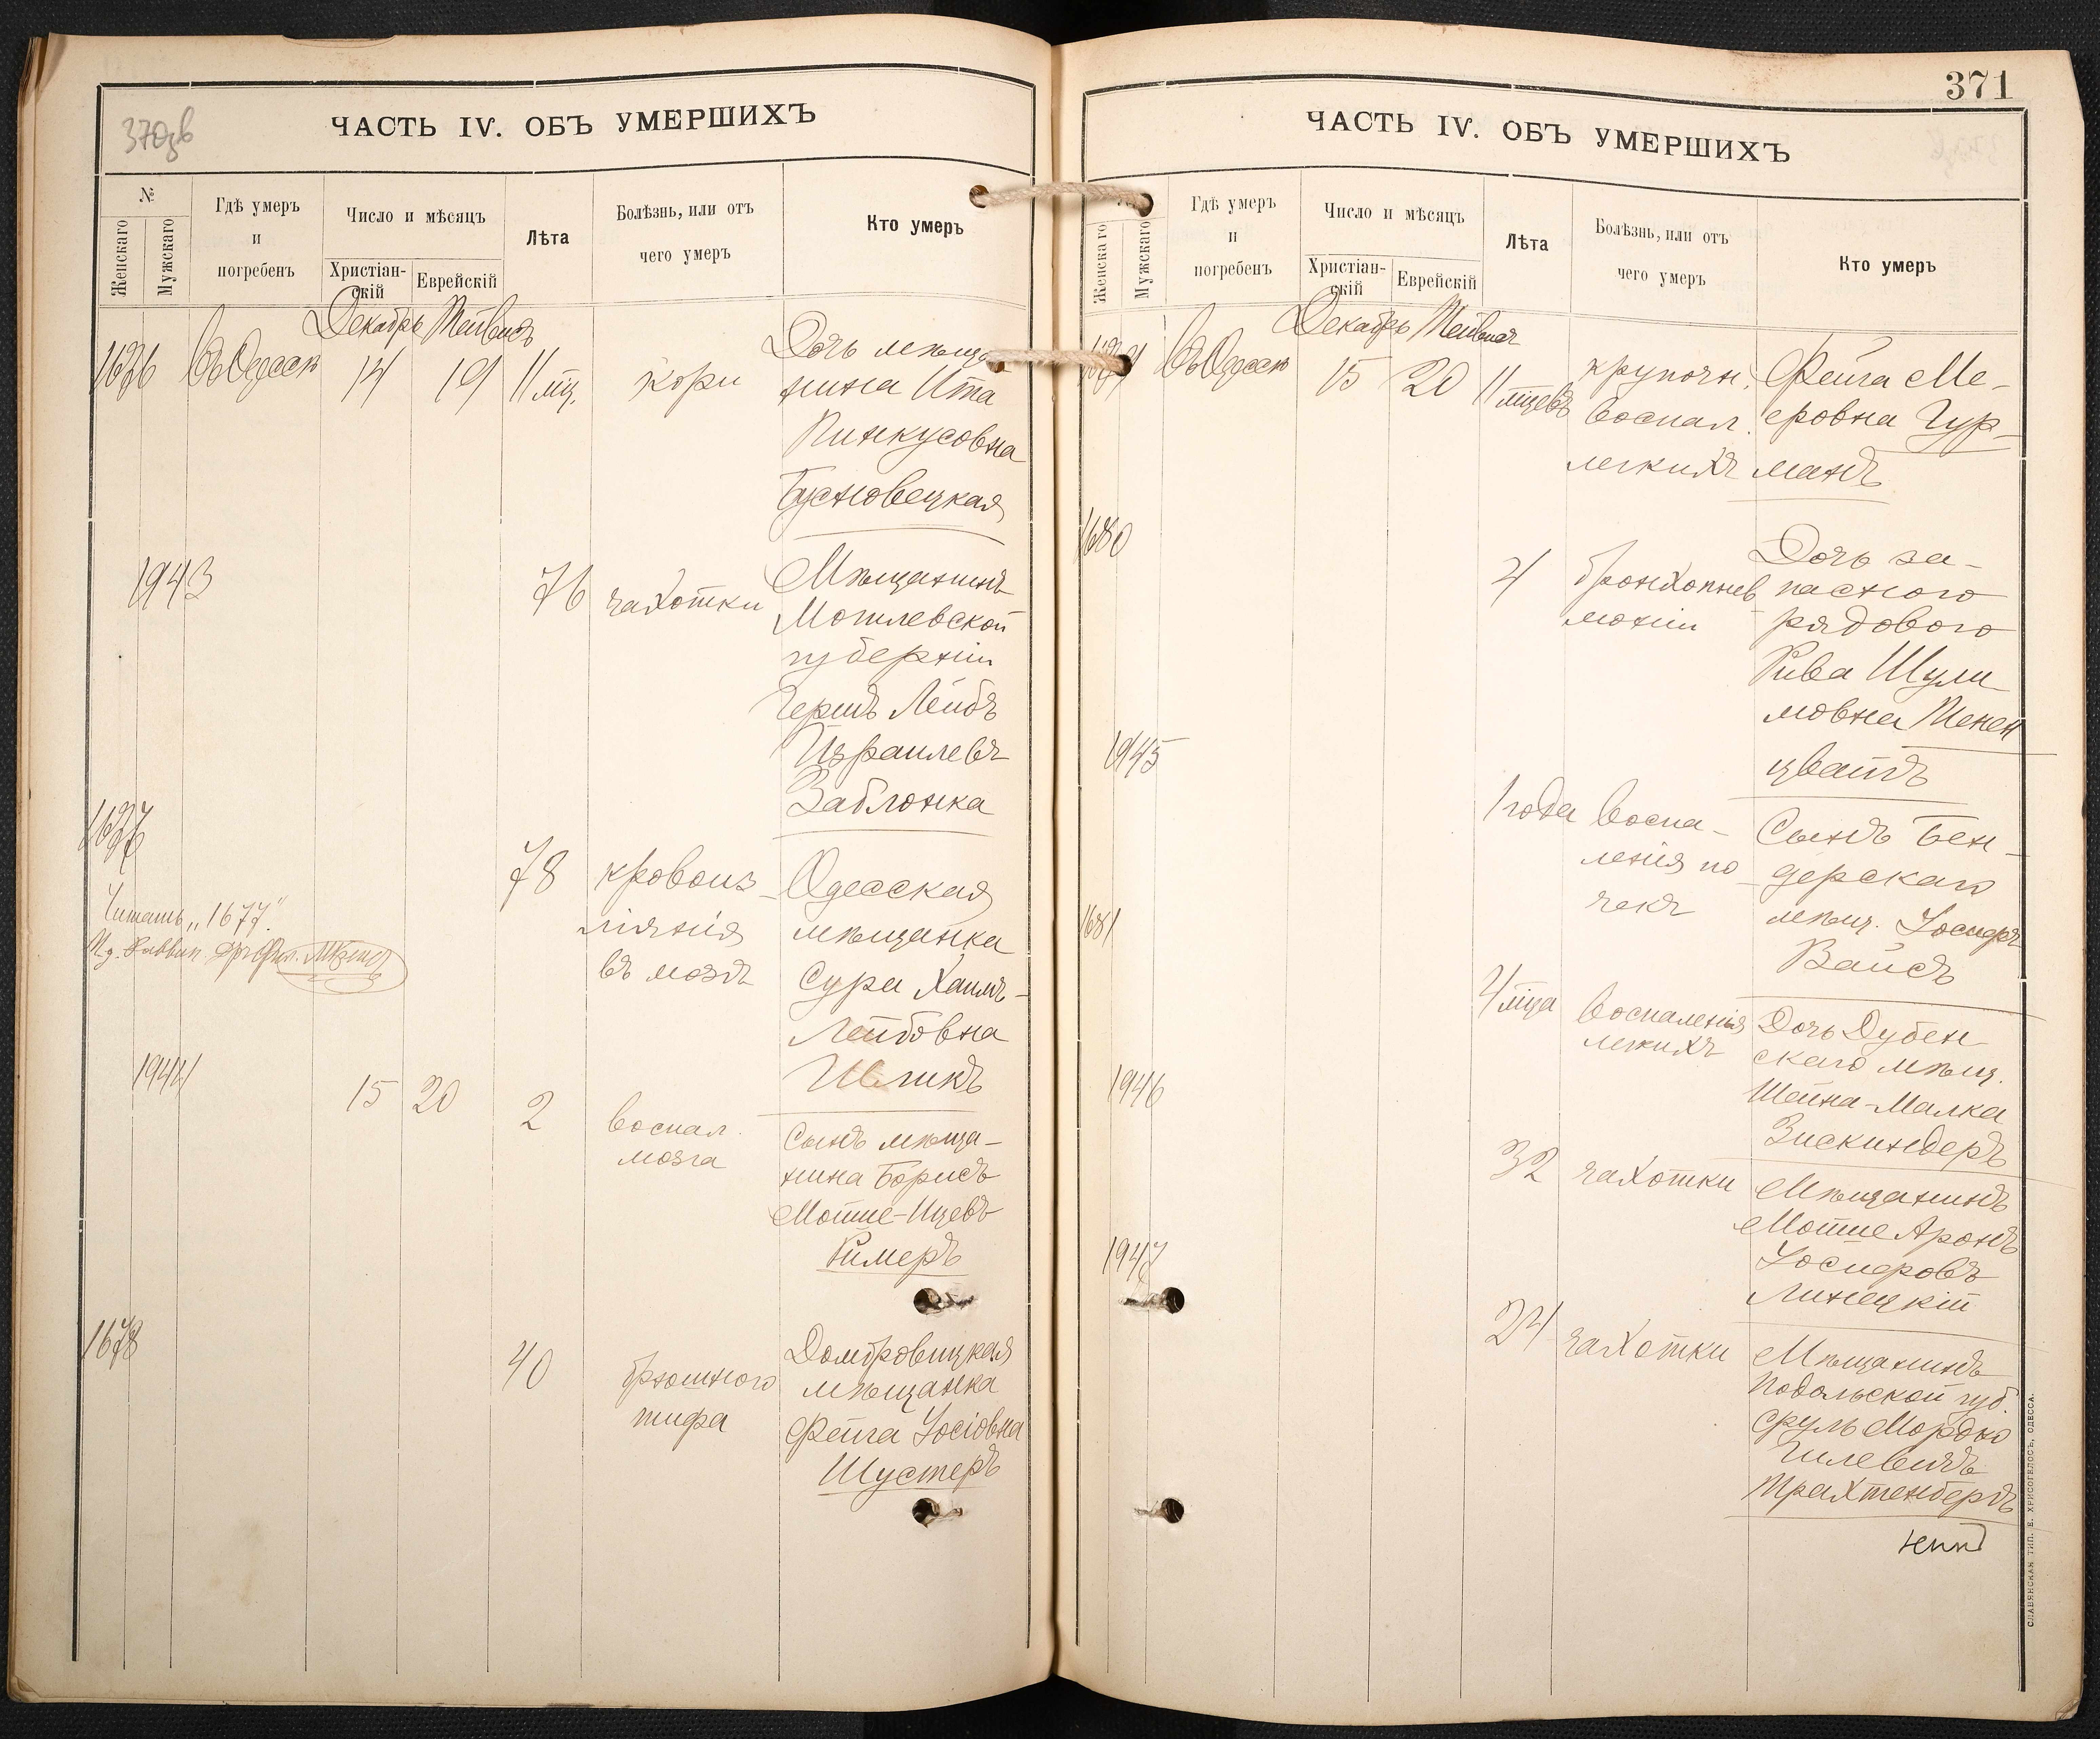 370зв
ЧАСТЬ IV. ОБЪ УМЕРШИХЪ
№
Женскаго
Мужскаго
Гдѣ умеръ
и
погребенъ
Число и мѣсяцъ
Христіан-
скій
Еврейскій
Лѣта
Болѣзнь, или отъ
чего умеръ
Кто умеръ
Декабрь Тейвисъ
1676 Въ Одессѣ 14 19 11 мц. кори
Дочь мѣща
нина Ита
Пинкусовна
Бусновецкая
1943 76 чахотки
Мѣщанинъ
Могилевской
губерніи
Гершъ Лейбъ
Израилевъ
Заблонка
1677
Читать „1677."
78 кровоиз-
ліянія
въ мозгъ
Одесская
мѣщанка
Сура Хаимъ-
Лейбовна
Шликъ
1944 15 20 2 воспал.
мозга
Сынъ мѣща-
нина Борисъ
Мотше-Ицевъ
Римеръ
1678 40 брюшного
тифа
Домбровицкая
мѣщанка
Фейга Іосіовна
Шустеръ
371
ЧАСТЬ IV. ОБЪ УМЕРШИХЪ
Женскаго
Мужскаго
Гдѣ умеръ
и
погребенъ
Число и мѣсяцъ
Христіан-
скій
Еврейскій
Лѣта
Болѣзнь, или отъ
чего умеръ
Кто умеръ
Декабрь Тейвисъ
1679 Въ Одессѣ 15 20 11 мцевъ
крупозн.
воспал.
легкихъ
Фейга Ме-
еровна Гур-
манъ
1680 4 бронхопнев
моніи
Дочь за-
пасного
рядового
Рива Шули
мовна Тенен
цвайгъ
1945 1 года воспа-
ленія по-
чекъ
Сынъ Бен-
дерскаго
мѣщ. Іосифъ
Вайсъ
1681 4 мца воспаленія
легкихъ
Дочь Дубен
скаго мѣщ.
Шейна-Малка
Зискиндеръ
1946 32 чахотки
Мѣщанинъ
Мотше Аронъ
Іосифовъ
Линецкій
1947 24 чахотки
Мѣщанинъ
Подольской губ.
Сруль Мордко
Гилевичъ
Трахтенбергъ
СЛАВЯНСКАЯ ТИП. Е. ХРИСОГЕЛОСЪ, ОДЕССА.